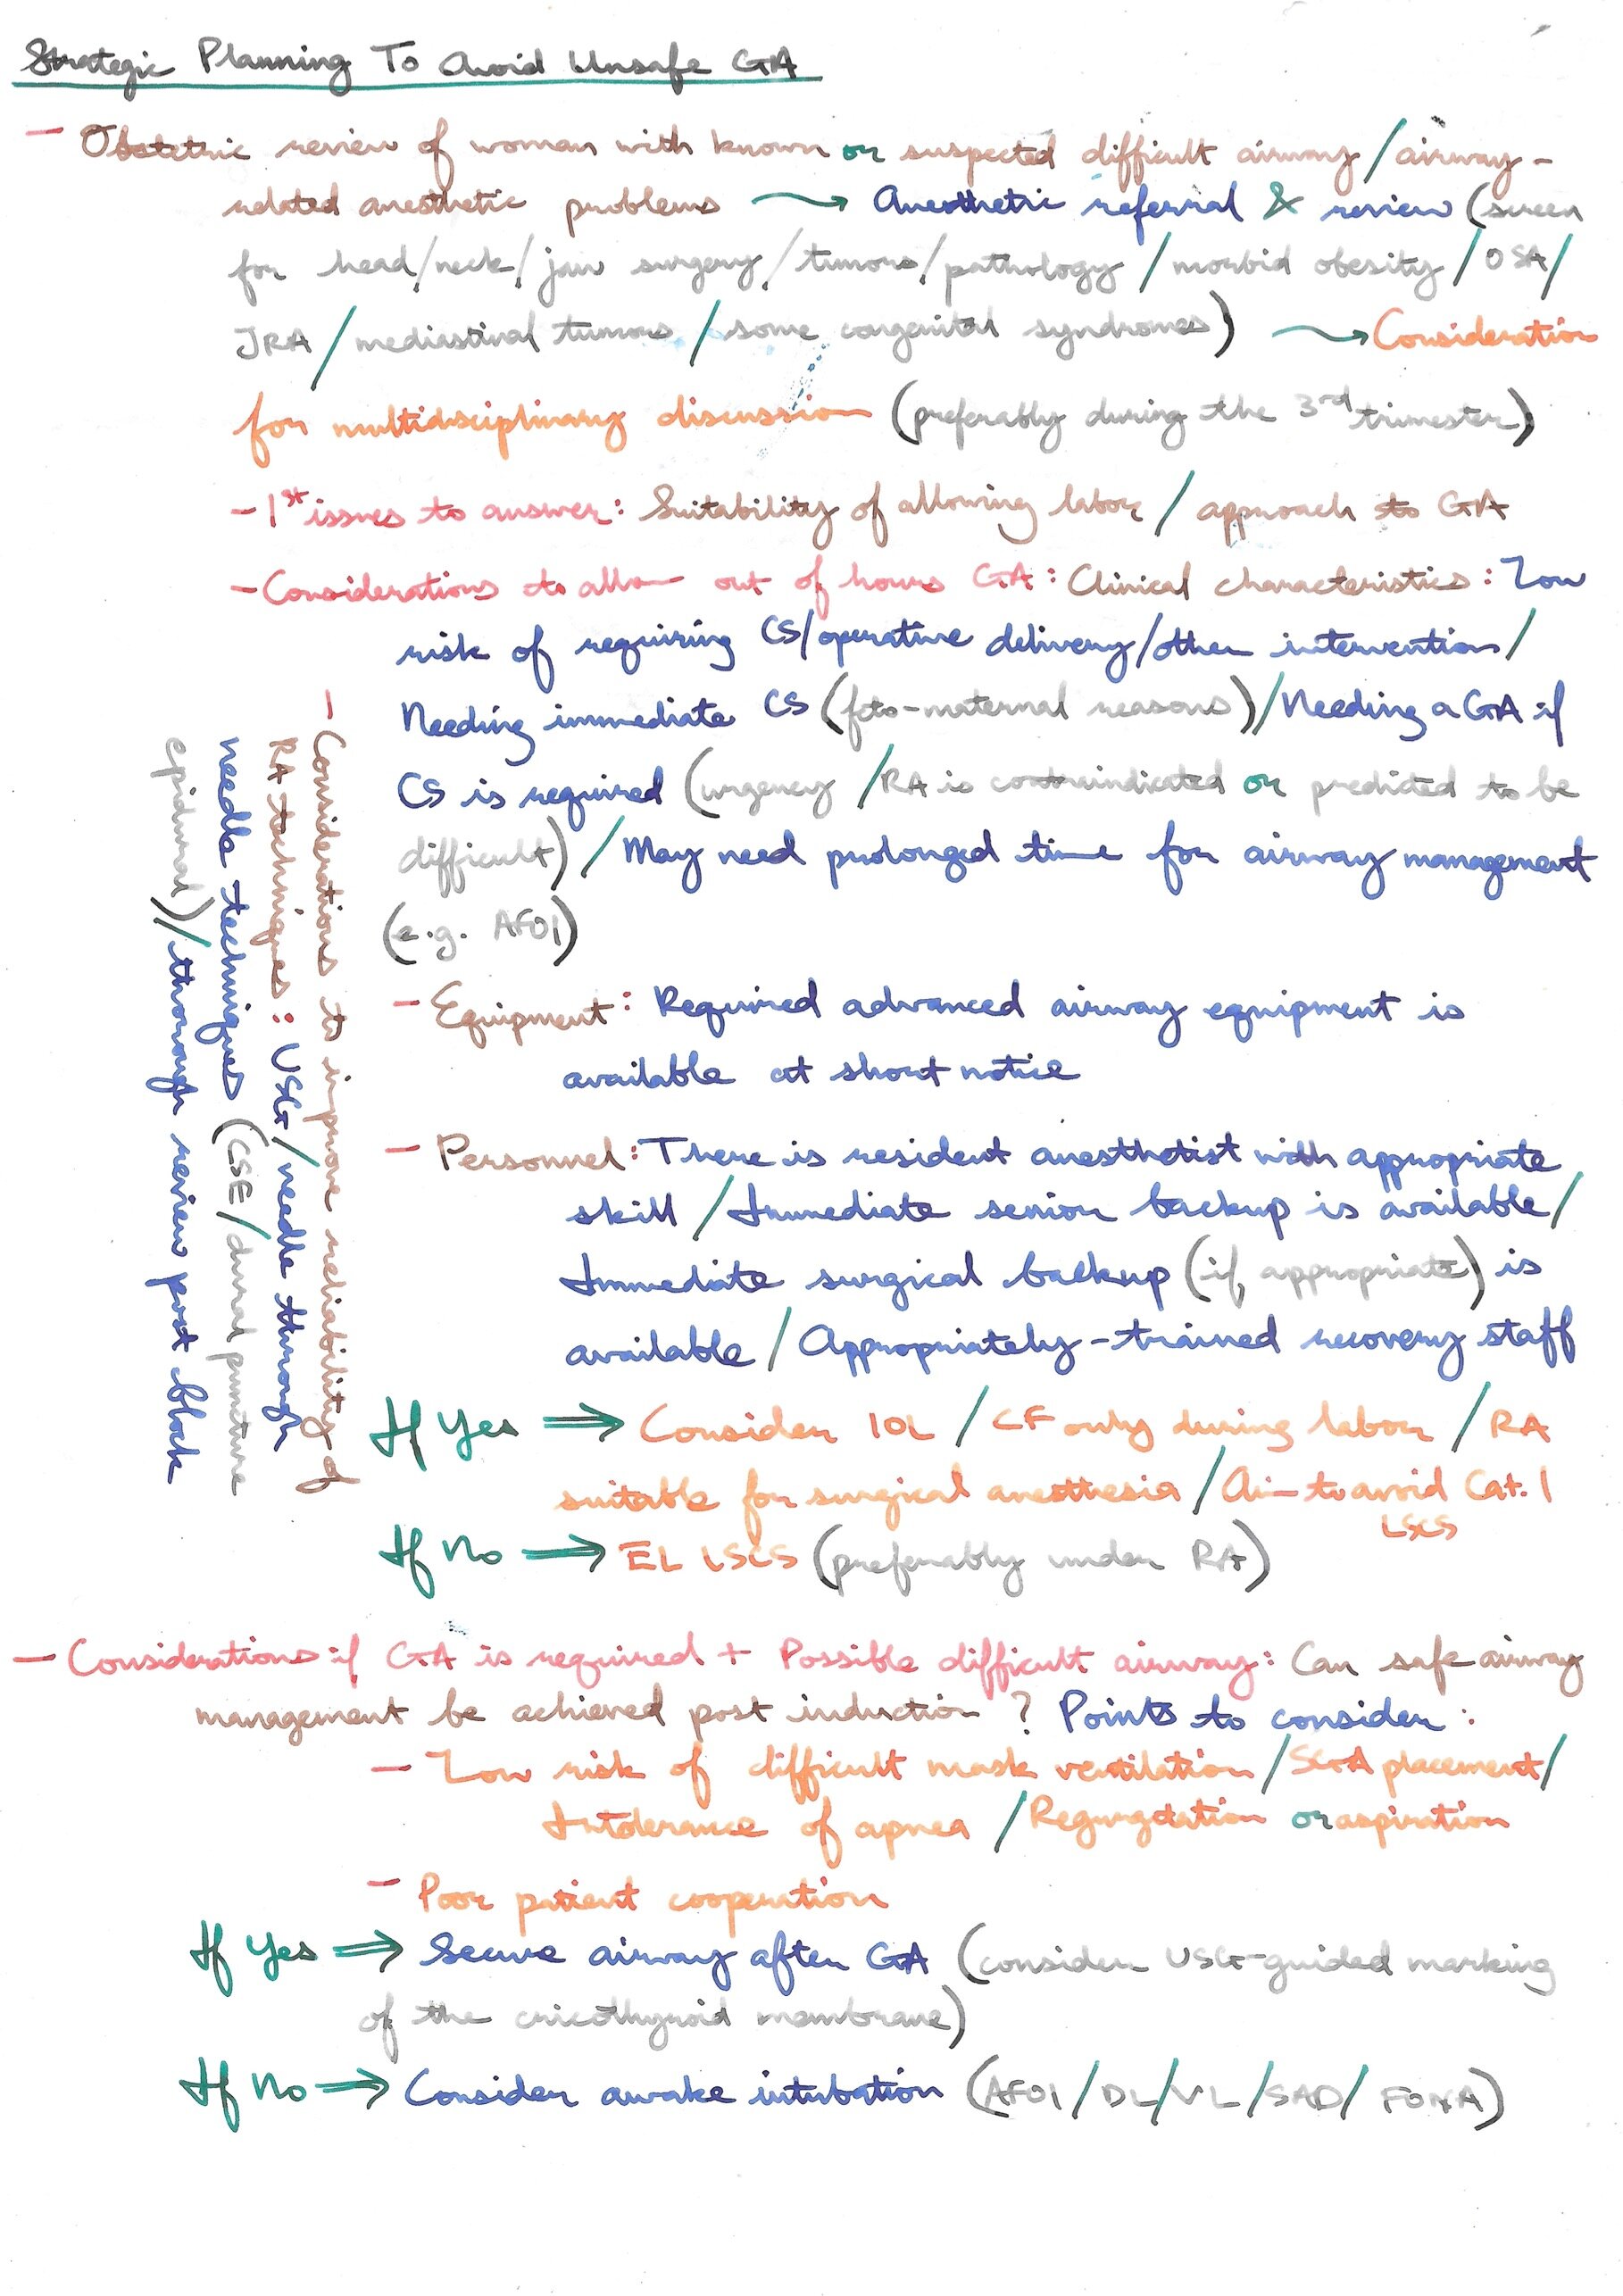 Strategic Planning To Avoid Unsafe GA
- Obstetric review of woman with known or suspected difficult airway / airway-
related anesthetic problems → Anesthetic referral & review (screen
for head/neck/jaw surgery/tumors/pathology / morbid obesity / OSA/
JRA / mediastinal tumors / some congenital syndromes) → Consideration
for multidisciplinary discussion (preferably during the 3rd trimester)
- 1st issues to answer: Suitability of allowing labor / approach to GA
- Considerations to allow out of hours GA: Clinical characteristics: Low
risk of requiring CS/operative delivery/other intervention/
Needing immediate CS (feto-maternal reasons)/Needing a GA if
CS is required (urgency / RA is contraindicated or predicted to be
difficult) / May need prolonged time for airway management
(e.g. AFOI)
- Equipment: Required advanced airway equipment is
available at short notice
- Personnel: There is resident anesthetist with appropriate
skill / Immediate senior backup is available/
Immediate surgical backup (if appropriate) is
available / Appropriately-trained recovery staff
If Yes ⇒ Consider IOL / CF only during labor / RA
suitable for surgical anesthesia / Aim to avoid Cat. 1
LSCS
If No → EL LSCS (preferably under RA)
- Considerations to improve reliability of
RA techniques: USG/needle through
needle techniques (CSE/dural puncture
epidural)/thorough review post block
- Considerations if GA is required + Possible difficult airway: Can safe airway
management be achieved post induction? Points to consider:
- Low risk of difficult mask ventilation/SGA placement/
Intolerance of apnea / Regurgitation or aspiration
- Poor patient cooperation
If Yes ⇒ Secure airway after GA (consider USG-guided marking
of the cricothyroid membrane)
If No ⇒ Consider awake intubation (AFOI/DL/VL/SAD/ FONA)